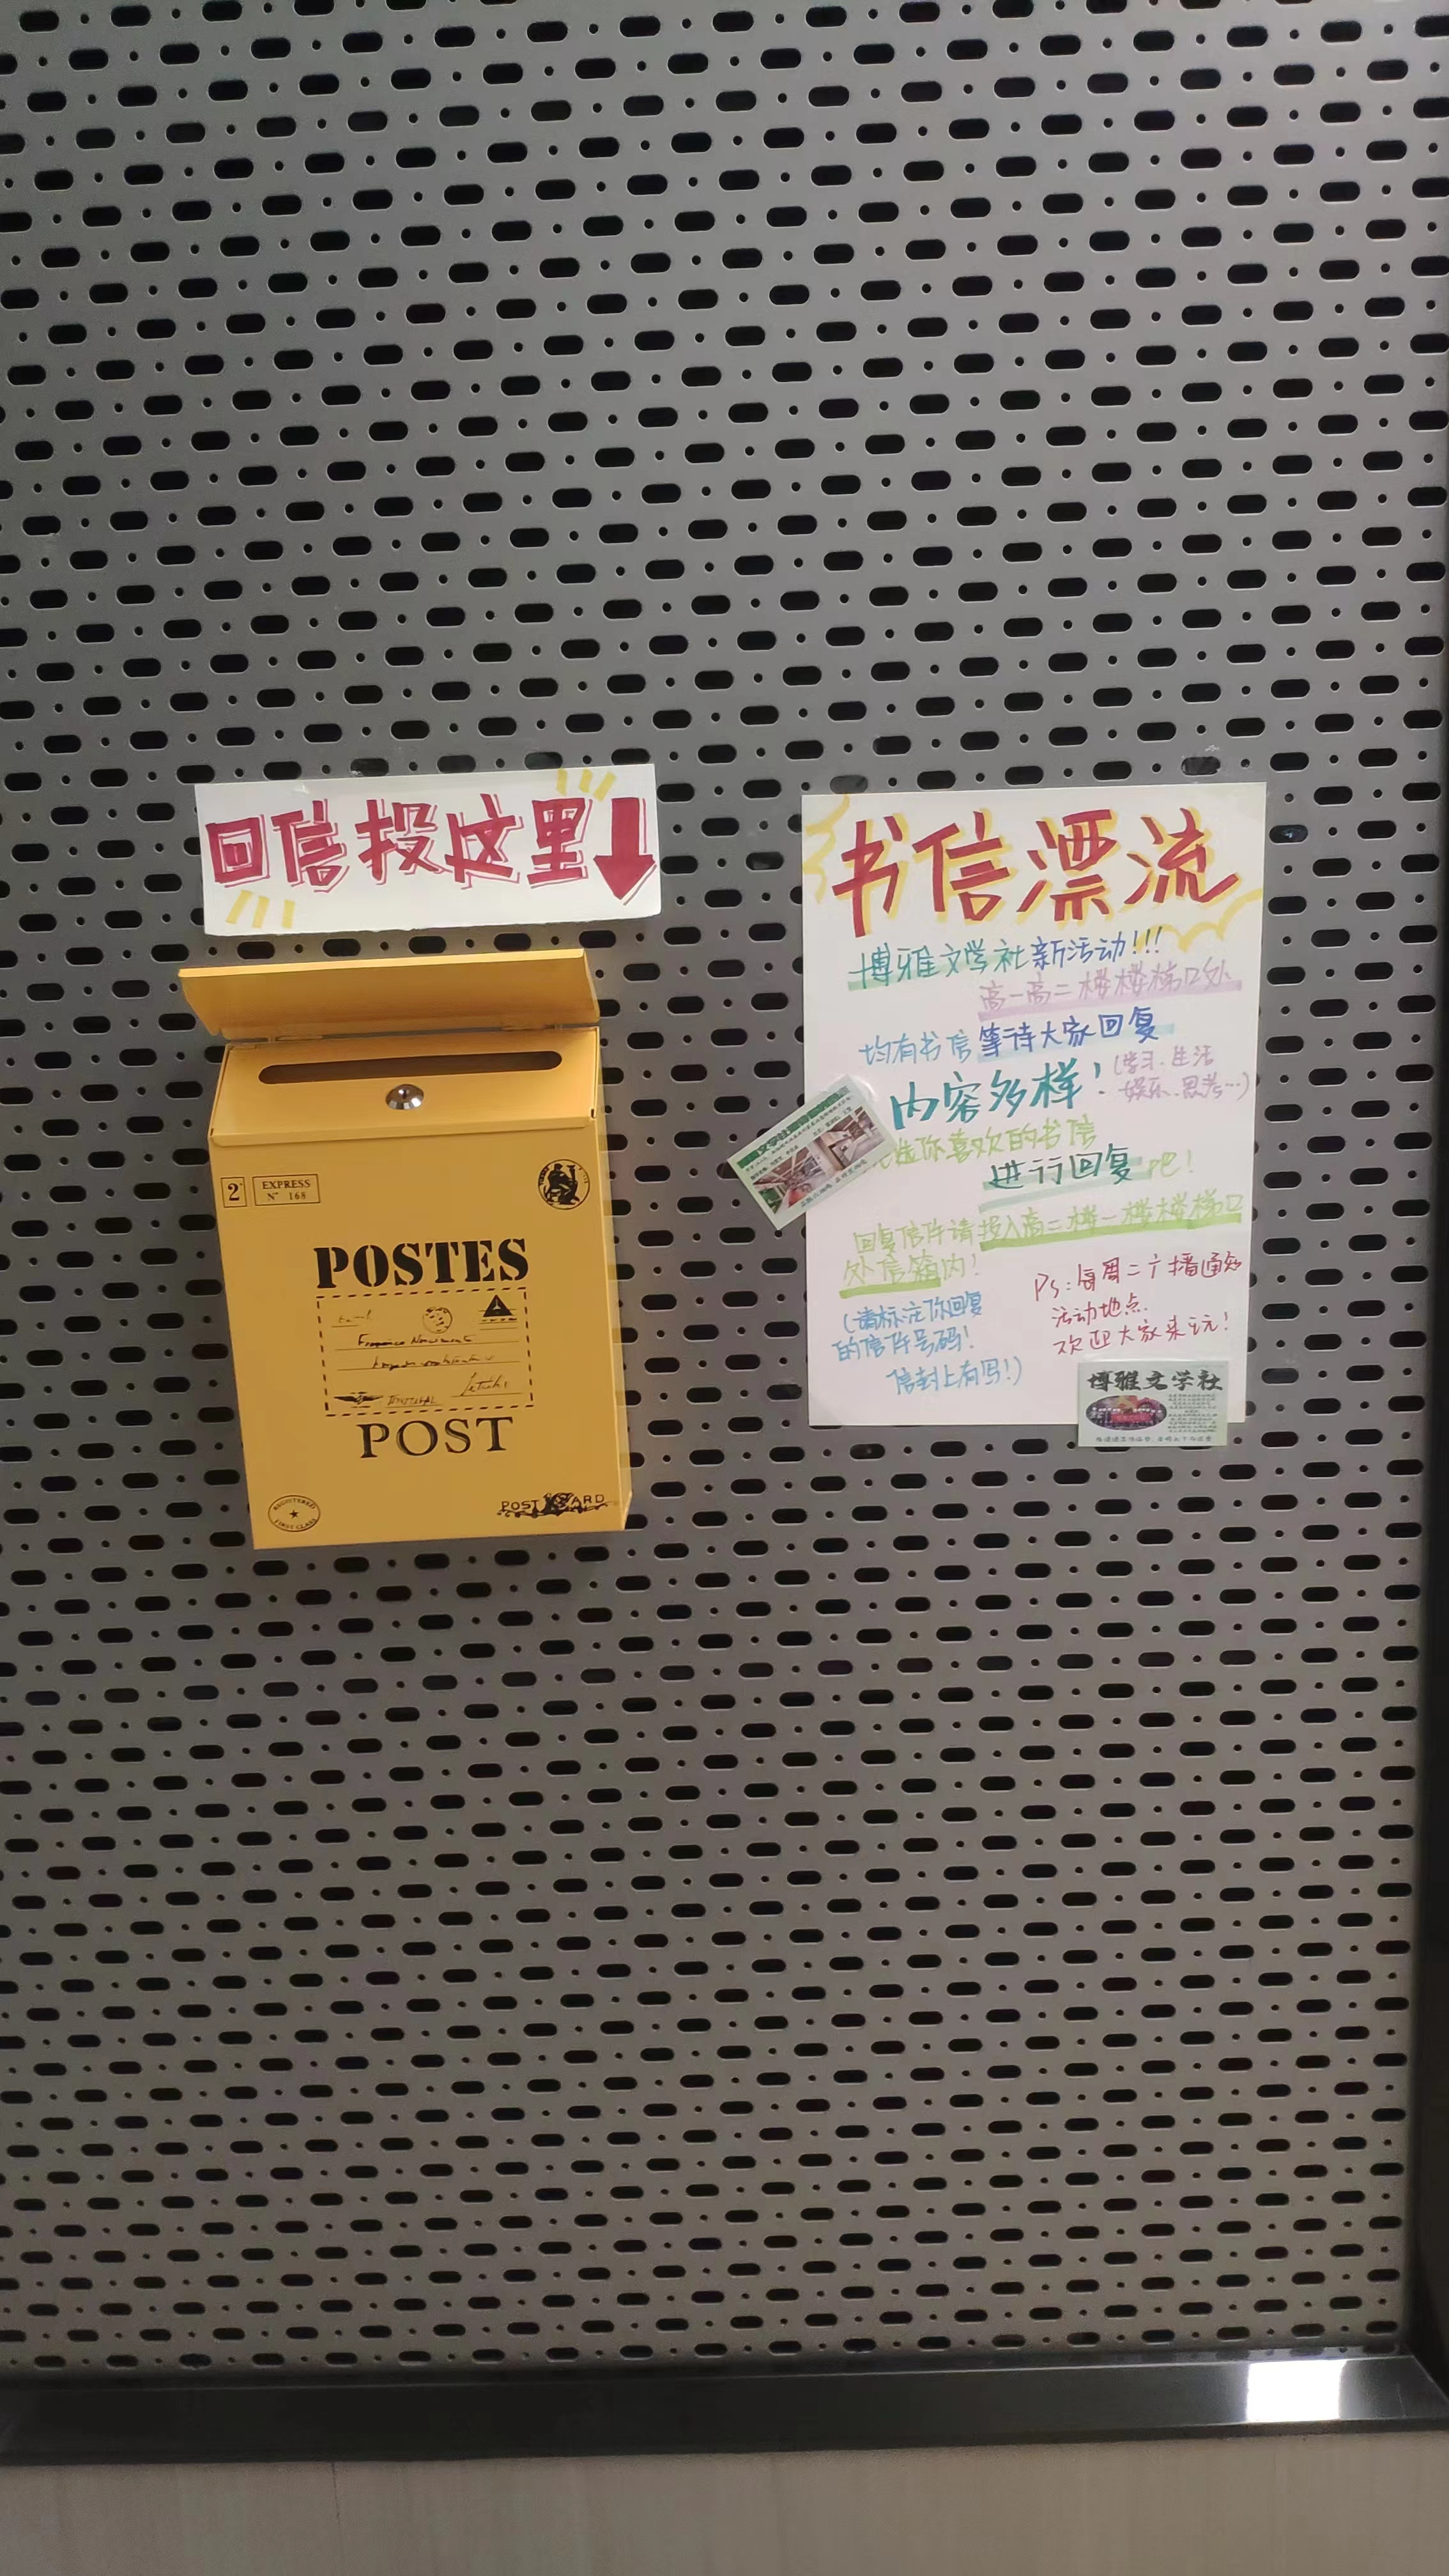 回信投这里
2
EXPRESS
N° 168
POSTES
POST
REGISTERED
FIRST CLASS
POST CARD
书信漂流
博雅文学社新活动!!!
高一高二楼楼梯口处
均有书信等待大家回复
内容多样!(学习.生活
娱乐.思考…)
选你喜欢的书信
进行回复吧!
回复信件请投入高二楼一楼楼梯口
处信箱内!
(请标注你回复
的信件号码!
信封上有写!)
Ps:每周二广播通知
活动地点.
欢迎大家来玩!
博雅文学社